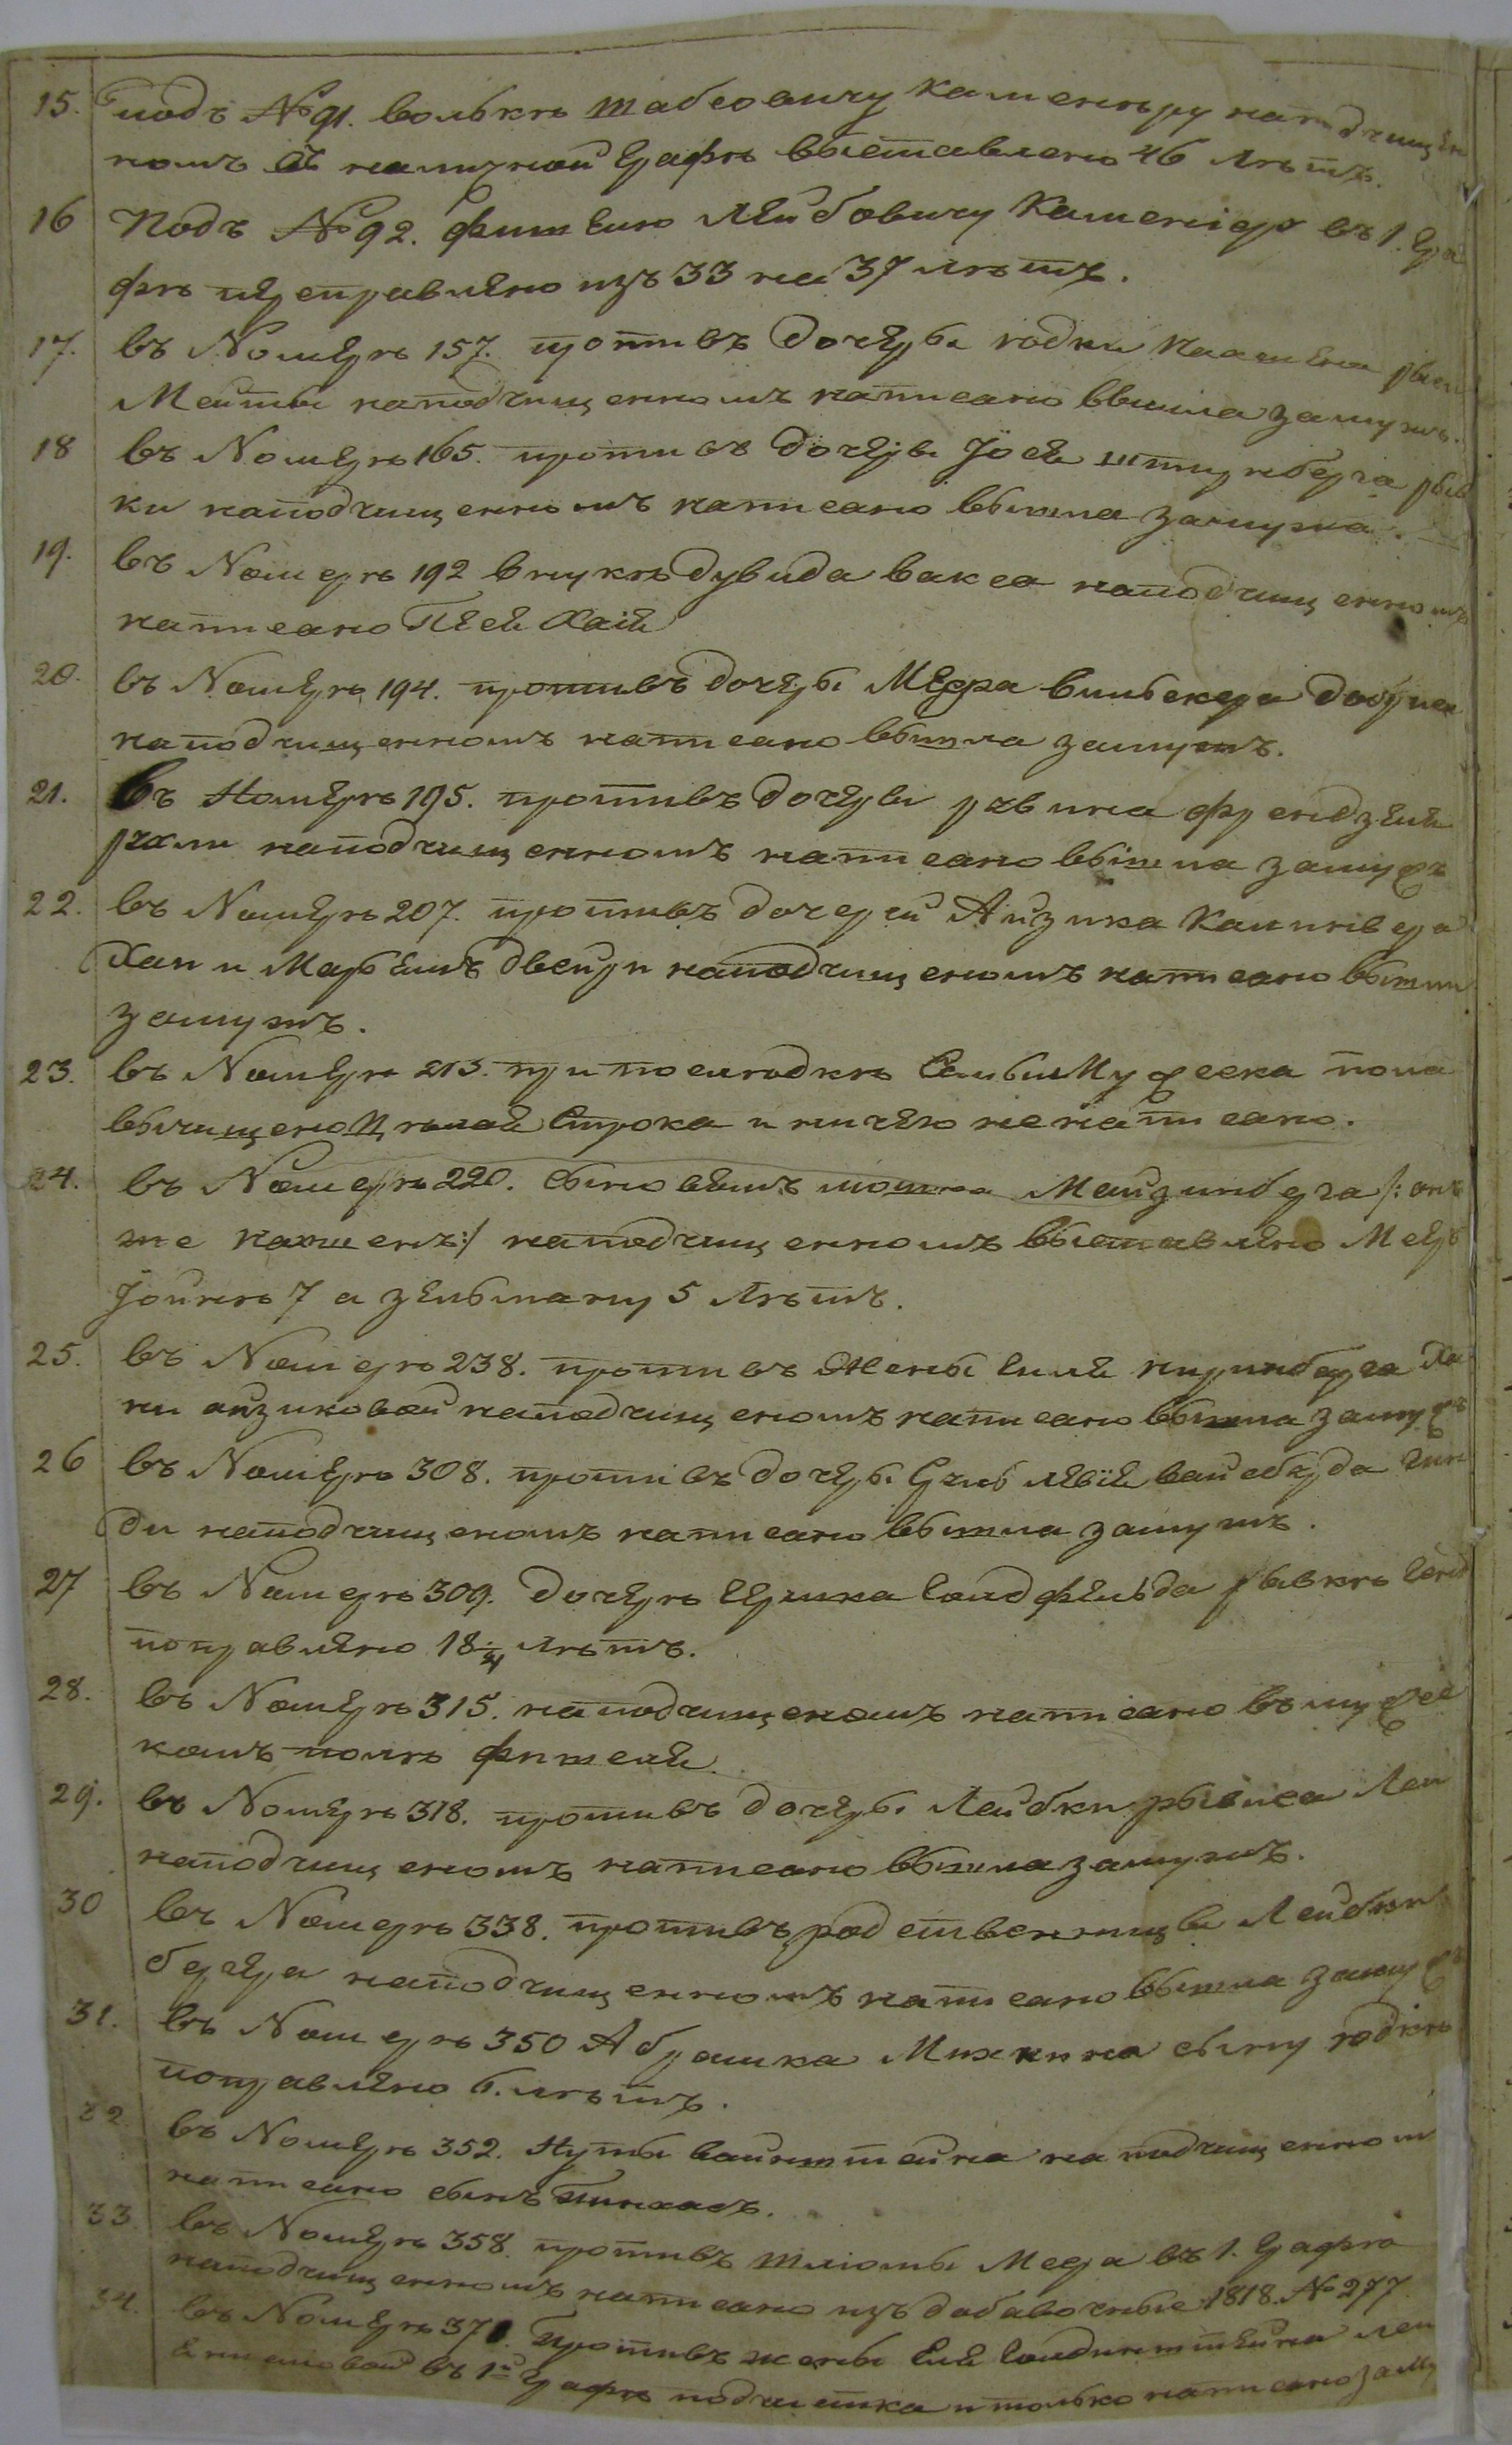 15. подъ №91. Волькѣ Шабсовичу Каменѣру наподчищен
номъ въ наличной Графѣ выставлено 46 лѣтъ.
16 Подъ №92. Фишелю Лейбовичу Каменіеръ въ 1. Гра
фѣ переправлено изъ 33 на 37 лѣтъ.
17. въ Номерѣ 157. противъ дочеры Іодки
Мейты наподчищенномъ написано вышла замужъ.
18 въ Номерѣ 165. противъ дочеры Іосея Штернберга рыв
ки наподчищенномъ написано вышла замужъ.
19. въ Номерѣ 192 внукѣ Дувида Вакса наподчищенномъ
написано Песи Хаія
20. въ Номерѣ 194. противъ дочеры Меера Вильскера
наподчищенномъ написано вышла замужъ.
21. Въ Номерѣ 195. противъ дочеры рувина
рухли наподчищенномъ написано вышла замужъ
22. въ Номерѣ 207. противъ дочерей Айзика
Хаи и Марьемъ Двейри наподчищеномъ написано вышли
замужъ.
23. въ Номерѣ 213. при последкѣ мужеска пола
вычищено цѣлая Строка и ничего не написано.
24. въ Номерѣ 220. сыновьямъ Мошка Майзинберга /: онъ
же :/ наподчищенномъ выставлено Меер
Іойнѣ 7 а Зельману 5 лѣтъ.
25. въ Номерѣ 238. противъ жены Елія Ха
ни айзиковой наподчищеномъ написано вышла замужъ
26 въ Номерѣ 308. противъ дочеры Гин
ди наподчищеномъ написано вышла замужъ.
27 въ Номерѣ 309. дочерѣ Гершка Голдфельда рывкѣ
поправлено 18 лѣтъ.
28. въ Номерѣ 315. наподчищеномъ написано въ мужес
комъ полѣ Фишеля.
29. въ Номерѣ 318. противъ дочеры Лейбки Леи
наподчищеномъ написано вышла замужъ.
30 въ Номерѣ 338. противъ родственницы Лейбки
наподчищенномъ написано вышла замужъ
31. въ Номерѣ 350 Абрамка сыну Іодкѣ
поправлено 6. лѣтъ.
32. въ Номерѣ 352. Нуты Вайнштейна на подчищенном
написано сынъ Пинхасъ.
33. въ Номерѣ 358. противъ Шліомы Меера въ 1. Графѣ
наподчищенномъ написано изъ добавочные 1818. №277.
34. въ Номерѣ 371. противъ жены Елія Голдинштейна Леи
въ 1й Графѣ подчистка и только написано заму